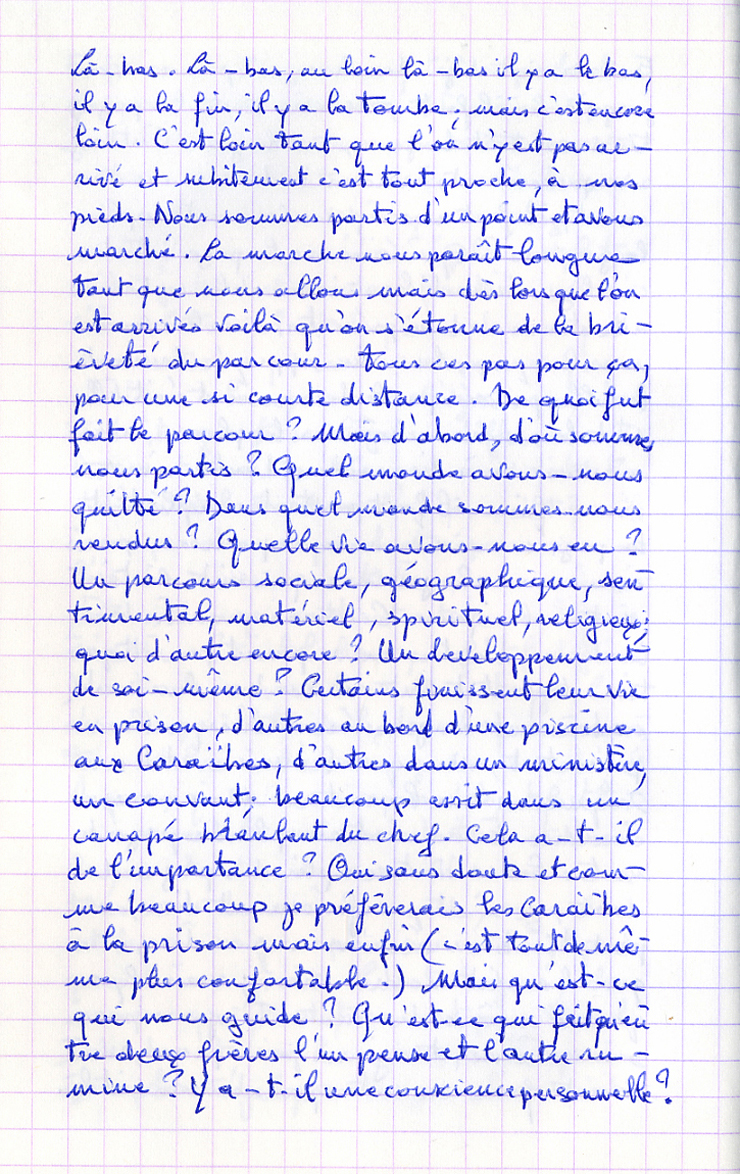 Là-bas. Là-bas, au loin là-bas il y a le bas,
il y a la fin, il y a la tombe ; mais c'est encore
loin. C'est loin tant que l'on n'y est pas ar-
rivé et subitement c'est tout proche, à nos
pieds. Nous sommes partis d'un point et avons
marché. La marche nous paraît longue
tant que nous allons mais dès lors que l'on
est arrivés voilà qu'on s'étonne de la bri-
èveté du parcour. Tous ces pas pour ça,
pour une si courte distance. De quoi fut
fait le parcour ? Mais d'abord, d'où sommes
nous partis ? Quel monde avons-nous
quitté ? Dans quel monde sommes-nous
rendus ? Quelle vie avons-nous eu ?
Un parcours sociale, géographique, sen-
timental, matériel, spirituel, religieux ;
quoi d'autre encore ? Un developpement
de soi-même ? Certains finissent leur vie
en prison, d'autres au bord d'une piscine
aux Caraïbes, d'autres dans un ministère,
un couvant ; beaucoup assit dans un
canapé branlant du chef. Cela a-t-il
de l'importance ? Oui sans doute et com-
me beaucoup je préfèrerais les Caraïbes
à la prison mais enfin (c'est tout de mê-
me plus confortable.) Mais qu'est-ce
qui nous guide ? Qu'est-ce qui fait qu'en
tre deux frères l'un pense et l'autre ru-
mine ? Y a-t-il une conscience personnelle ?